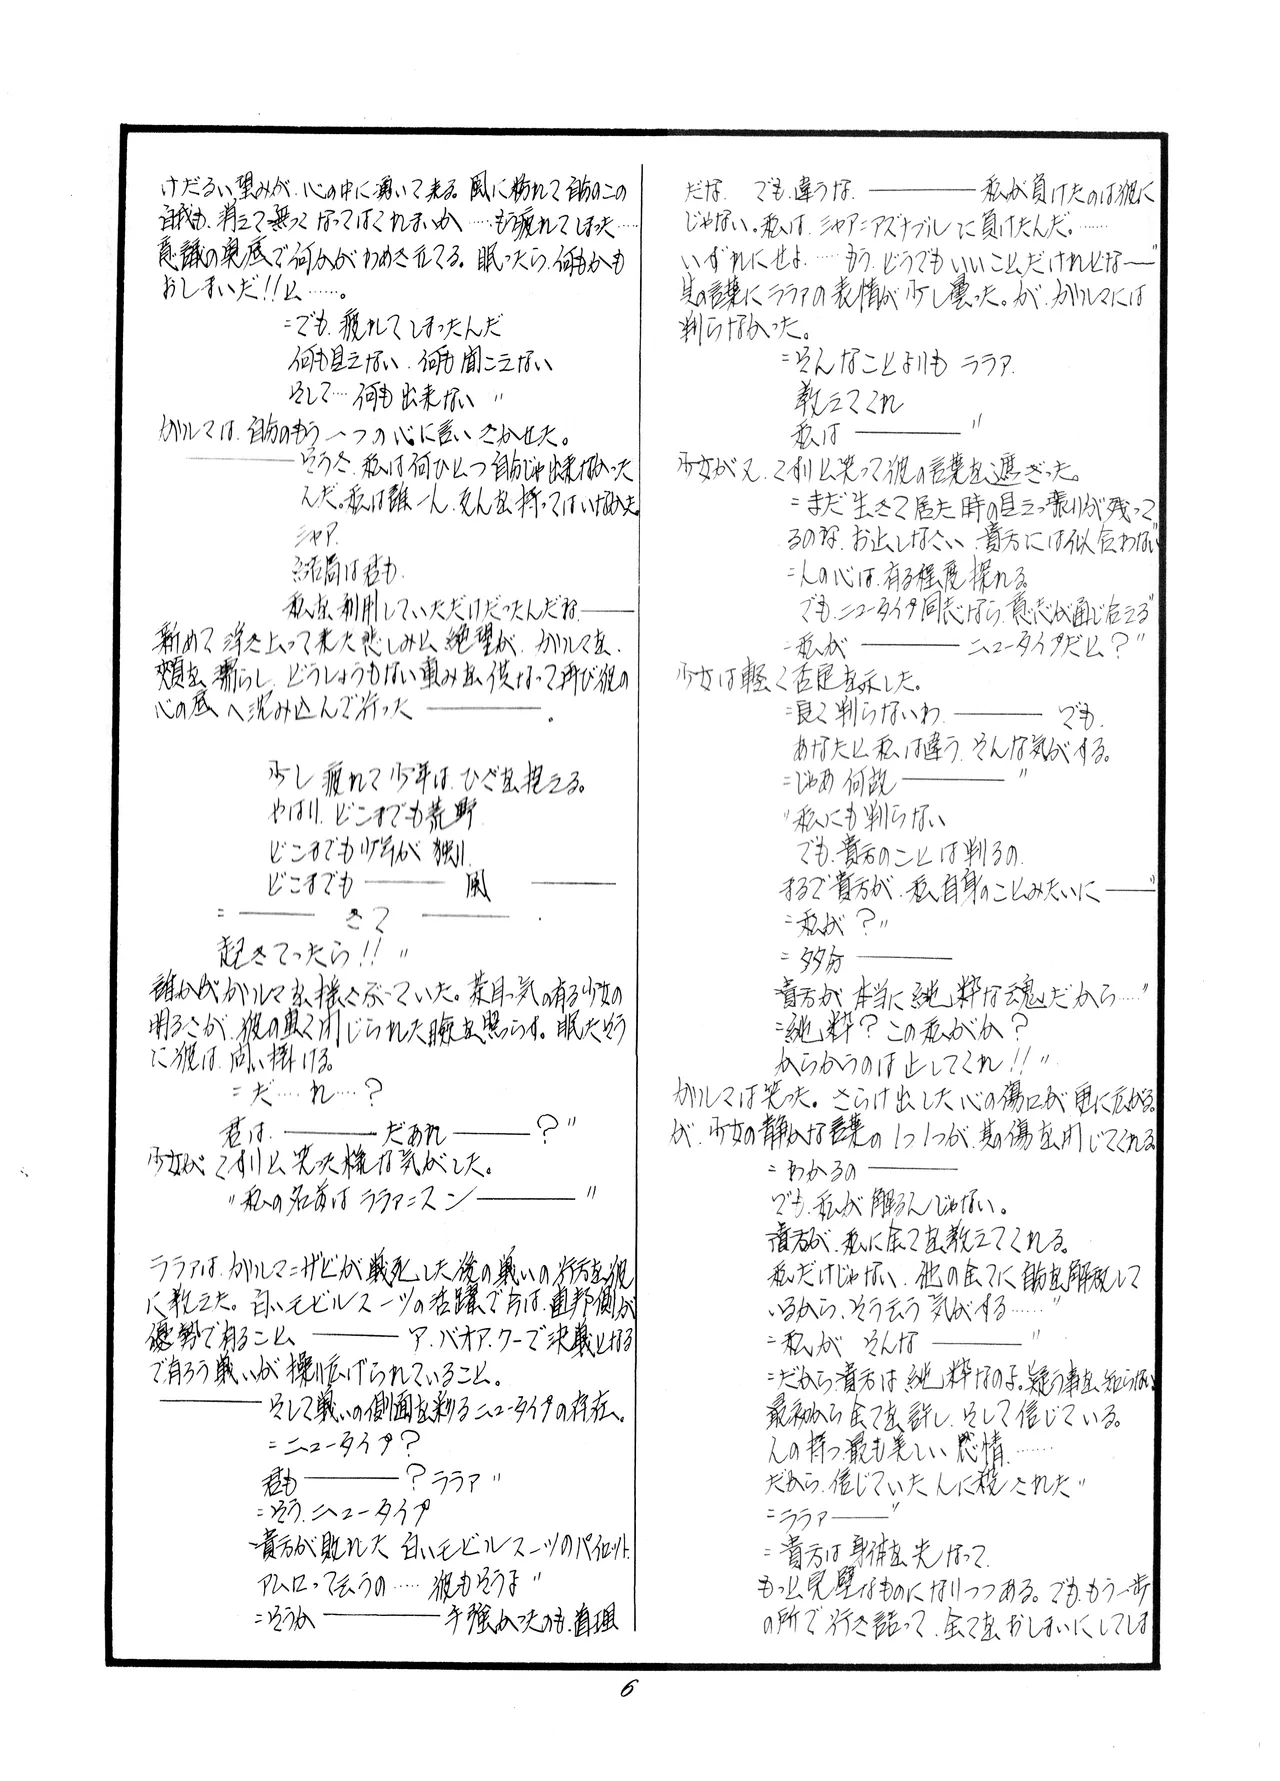 けだるい望みが、心の中に湧いて来る。風に枯れて自分のこの
自我も、消えて無くなってはくれまいか……もう疲れてしまった……
意識の奥底で何かがわめきたてる。眠ったら、何もかも
おしまいだ!!と……。
＝でも、疲れてしまったんだ
何も見えない、何も聞こえない
そして…何も出来ない〃
ガルマは、自分のもう一つの心に言いきかせた。
――――そうさ、私は何ひとつ自分じゃ出来なかった
んだ。私は誰一人、友人を持ってはいなかった。
シャア、
結局は君も、
私を利用していただけだったんだな――
新めて浮き上って来た悲しみと絶望が、ガルマを、
頬を濡らし、どうしようもない重みを供なって再び彼の
心の底へ沈み込んで行った――――。
少し疲れて少年は、ひざを抱える。
やはり、どこまでも荒野
どこまでも少年が独り
どこまでも――――風――――
＝――――きて――――、
起きてったら!!〃
誰かがガルマを揺さぶっていた。茶目っ気の有る少女の
明るさが、彼の重く閉じられた瞼を照らす。眠たそう
に彼は、問い掛ける。
＝だ…れ…?
君は、――――だあれ――――?〃
少女が、くすりと笑った様な気がした。
〃私の名前はララァ＝スン――――〃
ララァは、ガルマ＝ザビが戦死した後の戦いの行方を彼
に教えた。白いモビルスーツの活躍で今は、連邦側が
優勢で有ること、――――ア・バオア・クーで決戦となる
で有ろう戦いが繰り広げられていること。
――――そして戦いの側面を彩るニュータイプの存在。
＝ニュータイプ?
君も――――?ララァ〃
＝そう、ニュータイプ
＝貴方が敗れた白いモビルスーツのパイロット、
アムロって云うの……彼もそうよ〃
＝そうか――――手強かったのも、道理
だな。でも、違うな。――――私が負けたのは彼に
じゃない。私は、シャア＝アズナブルに負けたんだ。……
いずれにせよ……もう、どうでもいいことだけれどな――〃
其の言葉にララァの表情が少し曇った。が、ガルマには
判らなかった。
＝そんなことよりもララァ、
教えてくれ
私は――――〃
少女が又、くすりと笑って彼の言葉を遮ぎった。
＝まだ生きて居た時の見えっ張りが残って
るのね、お止しなさい、貴方には似合わない
＝人の心は、有る程度操れる。
でも、ニュータイプ同志なら、意志が通じ合える〃
＝私が――――ニュータイプだと?〃
少女は軽く否定を示した。
＝良く判らないわ、――――でも、
あなたと私は違う、そんな気がする。
＝じゃあ何故――――〃
〃私にも判らない
でも、貴方のことは判るの、
まるで貴方が、私自身のことみたいに――〃
＝私が?〃
＝多分――――
貴方が本当に純粋な魂だから……〃
＝純粋?この私がか?
からかうのは止してくれ!!〃
ガルマは笑った。さらけ出した心の傷口が更に広がる。
が、少女の静かな言葉の1つ1つが、其の傷を閉じてくれる。
＝わかるの――――
でも、私が解るんじゃない。
貴方が、私に全てを教えてくれる。
私だけじゃない、他の全てに自分を解放して
いるから、そう云う気がする……〃
＝私がそんな――――〃
＝だから、貴方は純粋なのよ。疑う事を知らない
最初から全てを許し、そして信じている。
人の持つ最も美しい感情……
だから、信じていた人に殺された〃
＝ララァ――〃
＝貴方は身体を失なって、
もっと完璧なものになりつつある。でも、もう一歩
の所で行き詰って、全てをおしまいにしてしま
6